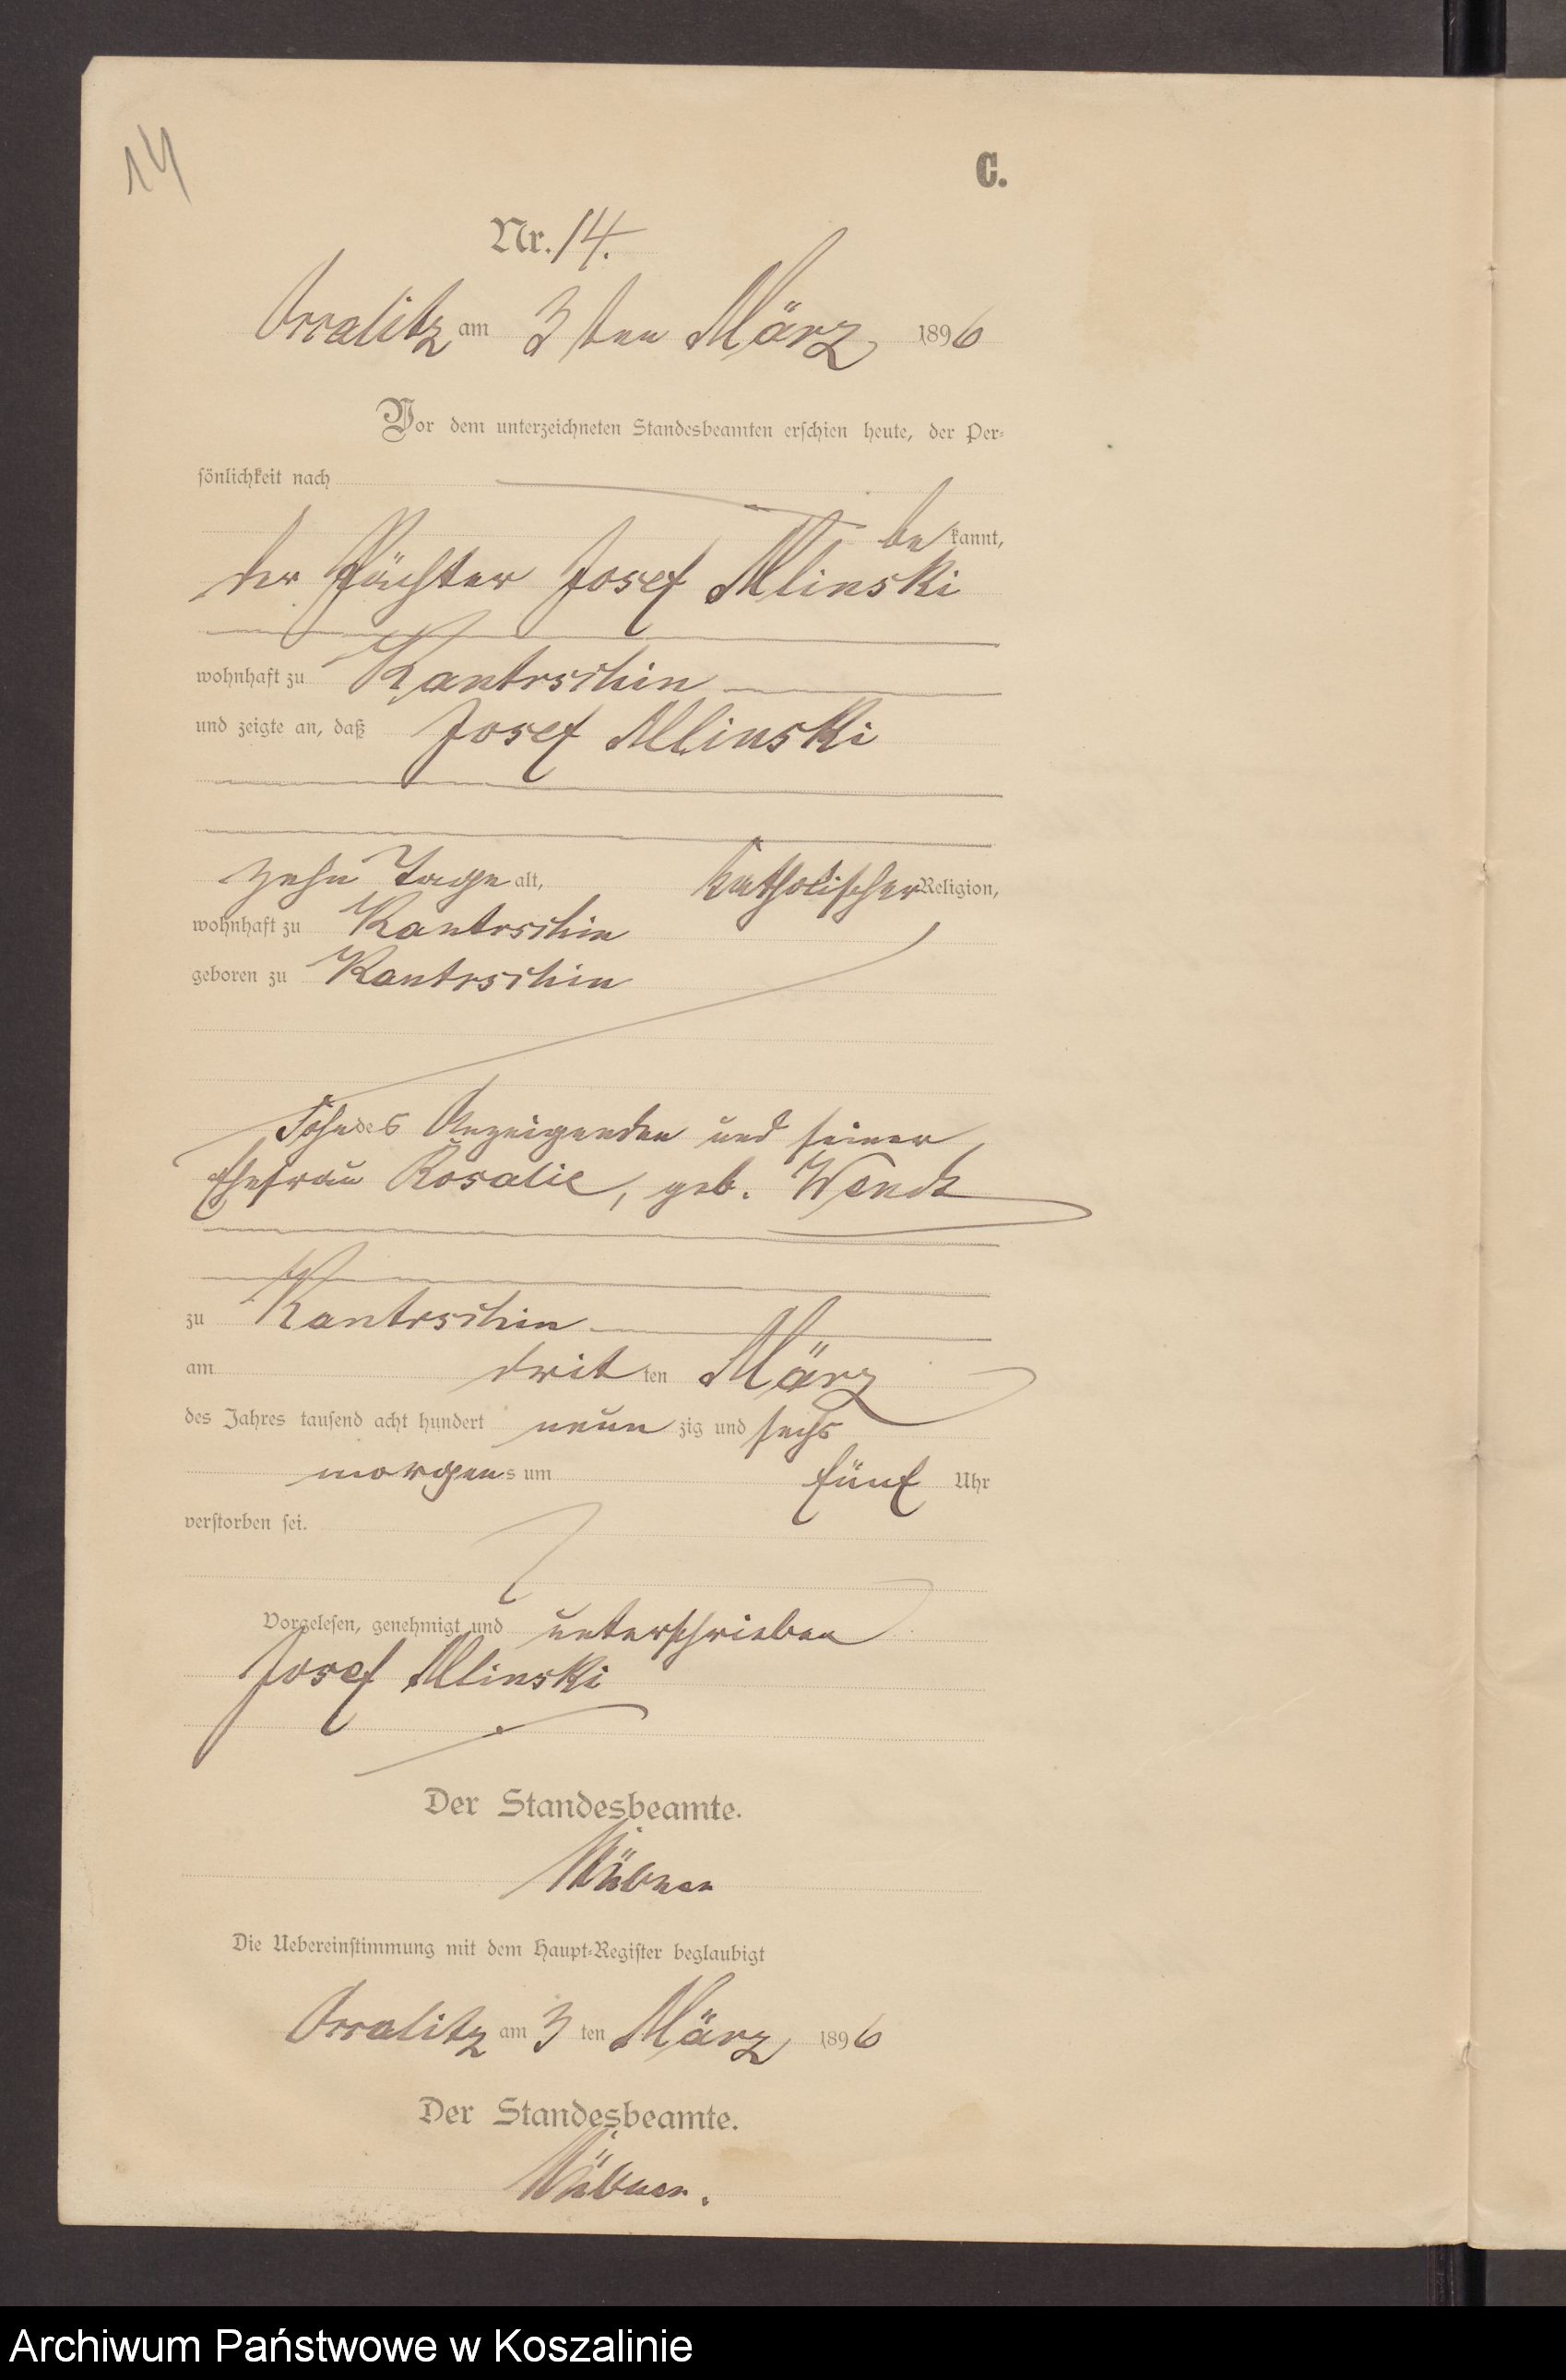 14
C.
Nr. 14.
am 3ten März 1896
Vor dem unterzeichneten Standesbeamten erschien heute, der Per-
sönlichkeit nach
bekannt,
der Pächter Josef Mlinski
wohnhaft zu Kantrschin
und zeigte an, daß Josef Mlinski
zehn Tage alt, katholischer Religion,
wohnhaft zu Kantrschin
geboren zu Kantrschin
Sohn des Anzeigenden und seiner
Ehefrau Rosalie, geb. Wendt
zu Kantrschin
am dritten März
des Jahres tausend acht hundert neunzig und sechs
morgens um fünf Uhr
verstorben sei.
Vorgelesen, genehmigt und unterschrieben
Josef Mlinski
Der Standesbeamte.
Die Uebereinstimmung mit dem Haupt-Register beglaubigt
am 3ten März 1896
Der Standesbeamte.
Archiwum Państwowe w Koszalinie